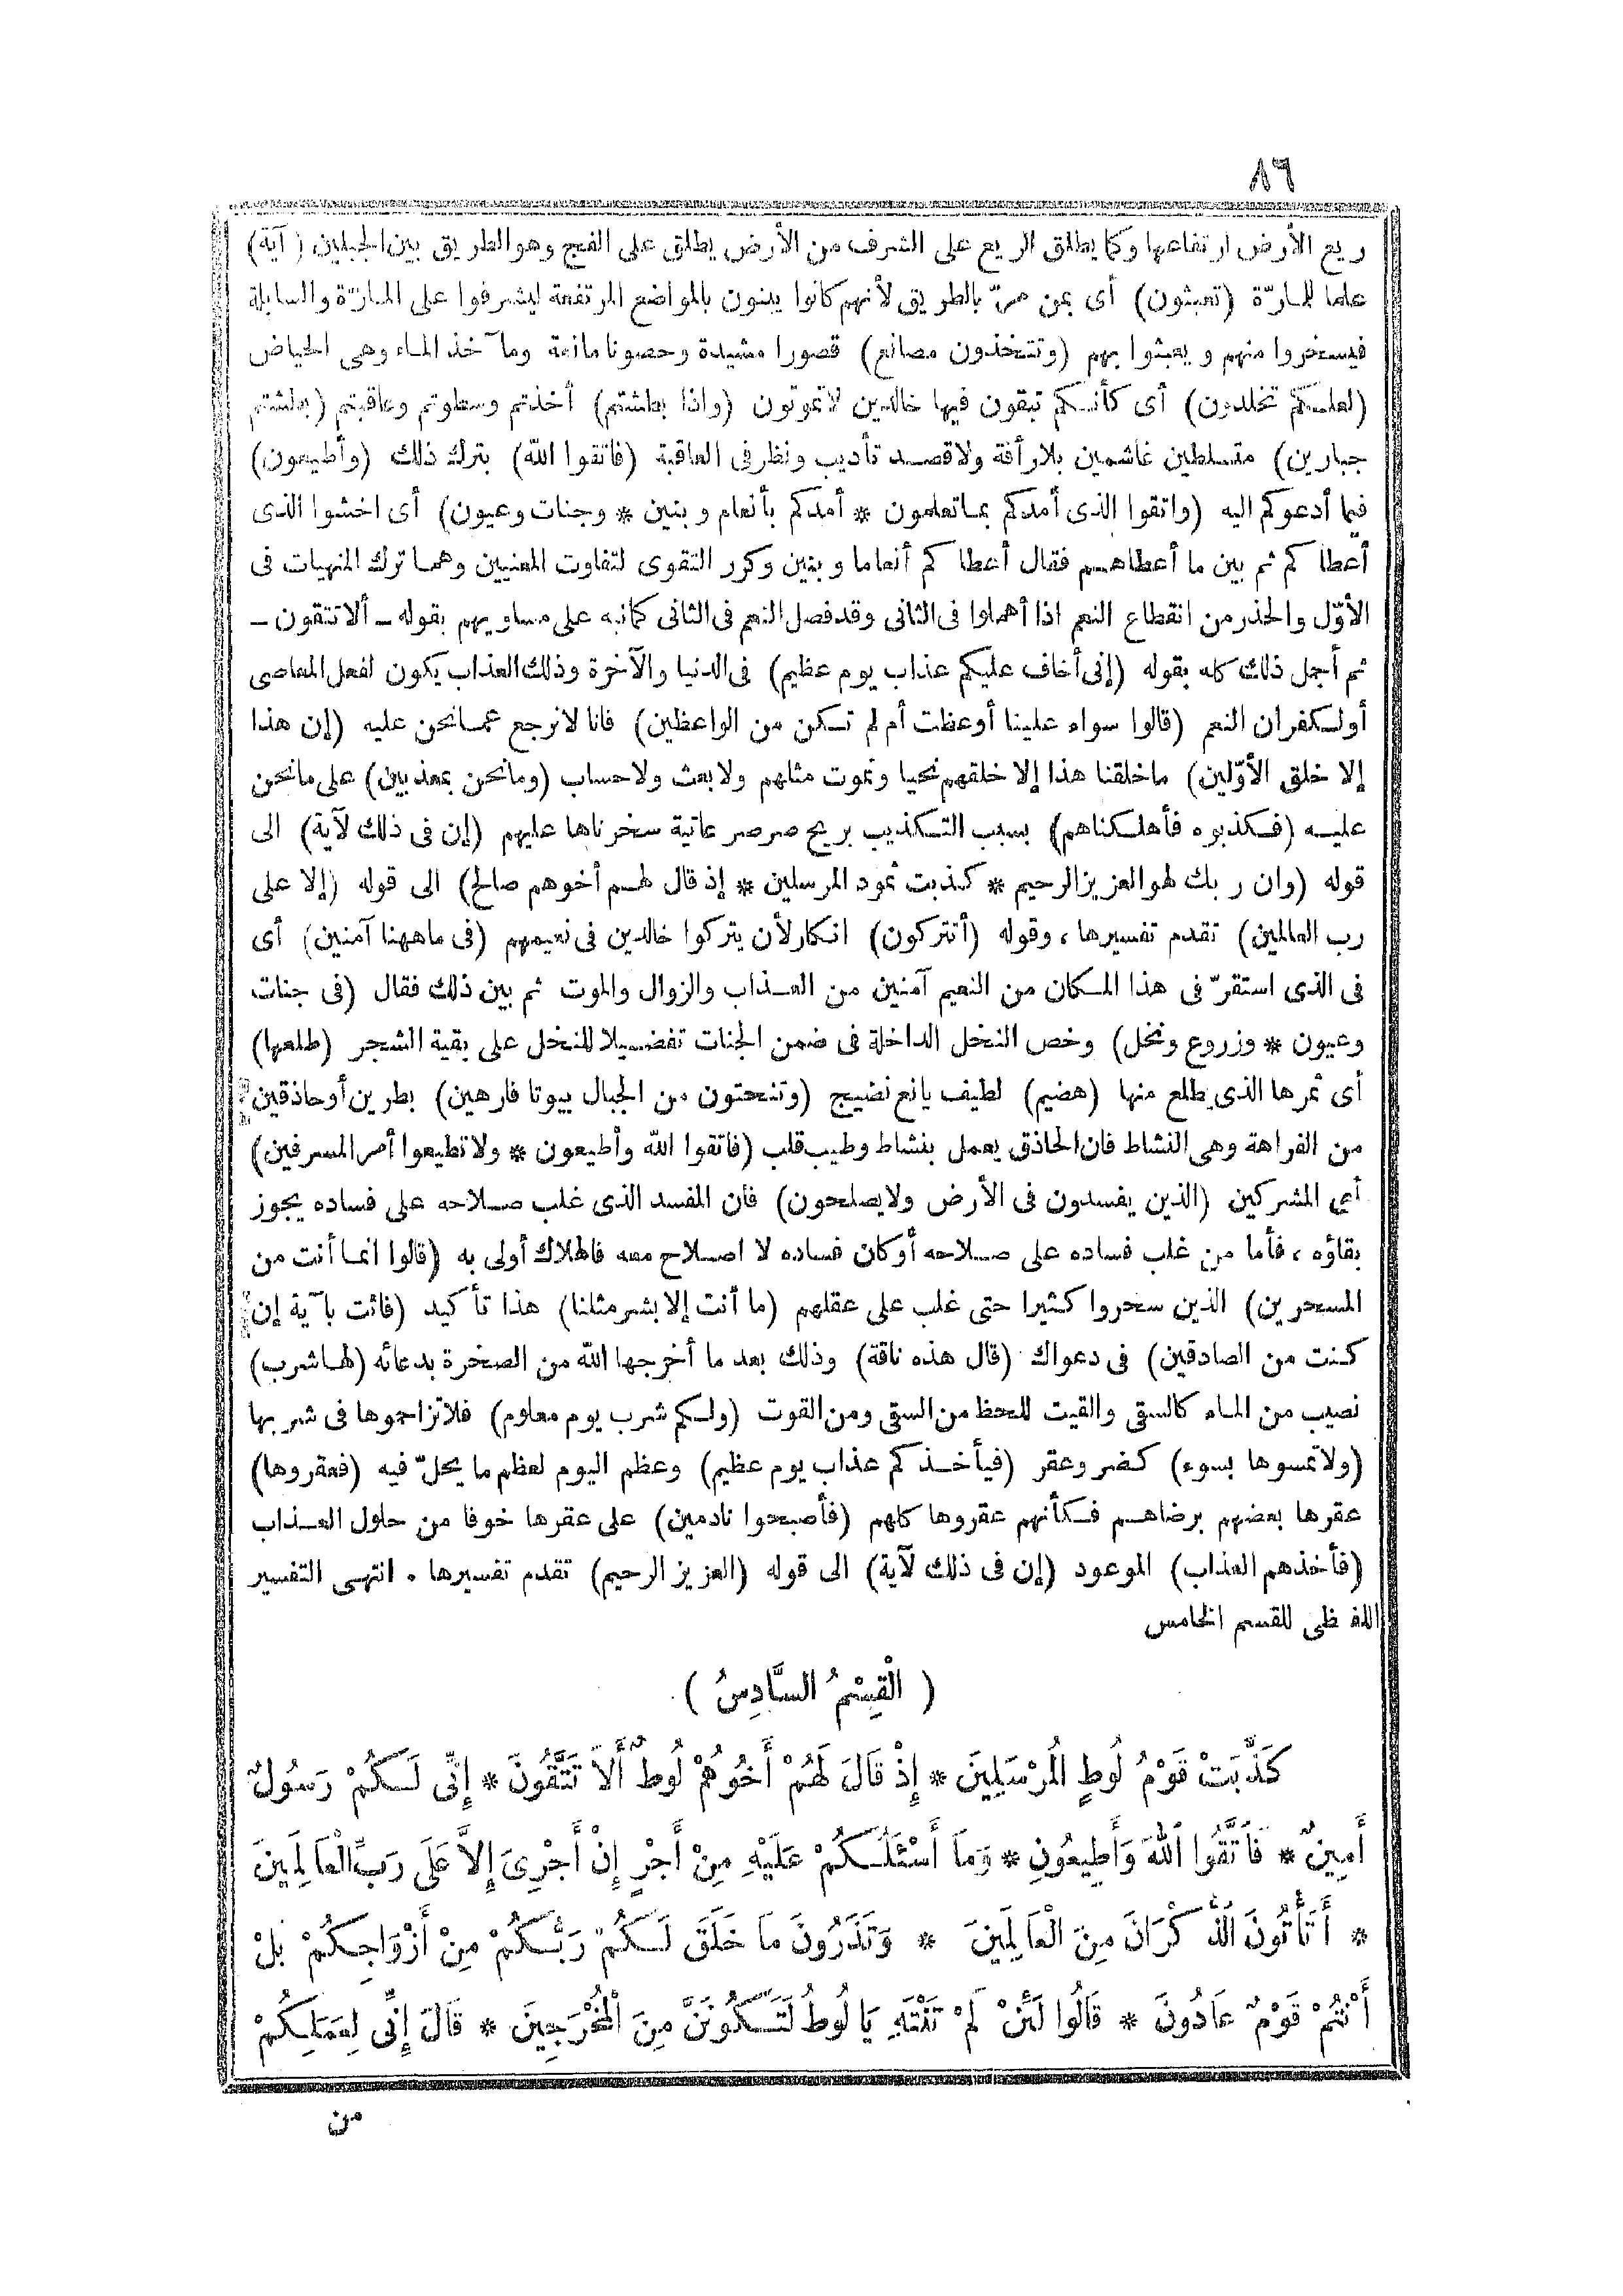 ٨٦
ريع الأرض ارتفاعها وكما يطلق الريع على الشرف من الأرض يطلق على الفج وهو الطريق بين الجبلين (آية)
علما للمارّة (تعبثون) أى بمن مرّ بالطريق لأنهم كانوا يبنون بالمواضع المرتفعة ليشرفوا على المارّة والسابلة
فيسخروا منهم ويعبثوا بهم (وتتخذون مصانع) قصورا مشيدة وحصونا مانعة ومآخذ الماء وهى الحياض
(لعلكم تخلدون) أى كأنكم تبقون فيها خالدين لاتموتون (واذا بطشتم) أخذتم وسطوتم وعاقبتم (بطشتم
جبارين) متسلطين غاشمين بلا رأفة ولا قصد تأديب ونظر فى العاقبة (فاتقوا الله) بترك ذلك (وأطيعون)
فيما أدعوكم اليه (واتقوا الذى أمدكم بما تعلمون * أمدكم بأنعام وبنين * وجنات وعيون) أى اخشوا الذى
أعطاكم ثم بين ما أعطاهم فقال أعطاكم أنعاما وبنين وكرر التقوى لتفاوت المعنيين وهما ترك المنهيات فى
الأوّل والحذر من انقطاع النعم اذا أهملوا فى الثانى وقد فصل النعم فى الثانى كما نبه على مساويهم بقوله ــ ألا تتقون ــ
ثم أجمل ذلك كله بقوله (إنى أخاف عليكم عذاب يوم عظيم) فى الدنيا والآخرة وذلك العذاب يكون لفعل المعاصى
أولكفران النعم (قالوا سواء علينا أوعظت أم لم تكن من الواعظين) فانا لا نرجع عما نحن عليه (إن هذا
إلا خلق الأوّلين) ما خلقنا هذا إلا خلقهم نحيا ونموت مثلهم ولا بعث ولا حساب (وما نحن بمعذبين) على ما نحن
عليه (فكذبوه فأهلكناهم) بسبب التكذيب بريح صرصر عاتية سخرناها عليهم (إن فى ذلك لآية) الى
قوله (وان ربك لهو العزيز الرحيم * كذبت ثمود المرسلين * إذ قال لهم أخوهم صالح) الى قوله (إلا على
رب العالمين) تقدم تفسيرها ، وقوله (أتتركون) انكار لأن يتركوا خالدين فى نعيمهم (فى ماههنا آمنين) أى
فى الذى استقرّ فى هذا المكان من النعيم آمنين من العذاب والزوال والموت ثم بين ذلك فقال (فى جنات
وعيون * وزروع ونخل) وخص النخل الداخلة فى ضمن الجنات تفضيلا للنخل على بقية الشجر (طلعها)
أى ثمرها الذى يطلع منها (هضيم) لطيف يانع نضيج (وتنحتون من الجبال بيوتا فارهين) بطرين أو حاذقين
من الفراهة وهى النشاط فان الحاذق يعمل بنشاط وطيب قلب (فاتقوا الله وأطيعون * ولا تطيعوا أمر المسرفين)
أى المشركين (الذين يفسدون فى الأرض ولا يصلحون) فان المفسد الذى غلب صلاحه على فساده يجوز
بقاؤه ، فأما من غلب فساده على صلاحه أو كان فساده لا اصلاح معه فالهلاك أولى به (قالوا انما أنت من
المسحرين) الذين سحروا كثيرا حتى غلب على عقلهم (ما أنت إلا بشر مثلنا) هذا تأكيد (فائت بآية إن
كنت من الصادقين) فى دعواك (قال هذه ناقة) وذلك بعد ما أخرجها الله من الصخرة بدعائه (لها شرب)
نصيب من الماء كالسقى والقيت للحظ من السقى ومن القوت (ولكم شرب يوم معلوم) فلا تزاحموها فى شربها
(ولا تمسوها بسوء) كضر وعقر (فيأخذكم عذاب يوم عظيم) وعظم اليوم لعظم ما يحلّ فيه (فعقروها)
عقرها بعضهم برضاهم فكأنهم عقروها كلهم (فأصبحوا نادمين) على عقرها خوفا من حلول العذاب
(فأخذهم العذاب) الموعود (إن فى ذلك لآية) الى قوله (العزيز الرحيم) تقدم تفسيرها . انتهى التفسير
اللفظى للقسم الخامس
( الْقِسْمُ السَّادِسُ )
كَذَّبَتْ قَوْمُ لُوطٍ الْمُرْسَلِينَ * إِذْ قَالَ لَهُمْ أَخُوهُمْ لُوطٌ أَلَا تَتَّقُونَ * إِنِّى لَكُمْ رَسُولٌ
أَمِينٌ * فَاتَّقُوا اللهَ وَأَطِيعُونِ * وَمَا أَسْئَلُكُمْ عَلَيْهِ مِنْ أَجْرٍ إِنْ أَجْرِىَ إِلاَّ عَلَى رَبِّ الْعَالَمِينَ
* أَتَأْتُونَ الذُّكْرَانَ مِنَ الْعَالَمِينَ * وَتَذَرُونَ مَا خَلَقَ لَكُمْ رَبُّكُمْ مِنْ أَزْوَاجِكُمْ بَلْ
أَنْتُمْ قَوْمٌ عَادُونَ * قَالُوا لَئِنْ لَمْ تَنْتَهِ يَا لُوطُ لَتَكُونَنَّ مِنَ الْمُخْرَجِينَ * قَالَ إِنِّى لِعَمَلِكُمْ
من